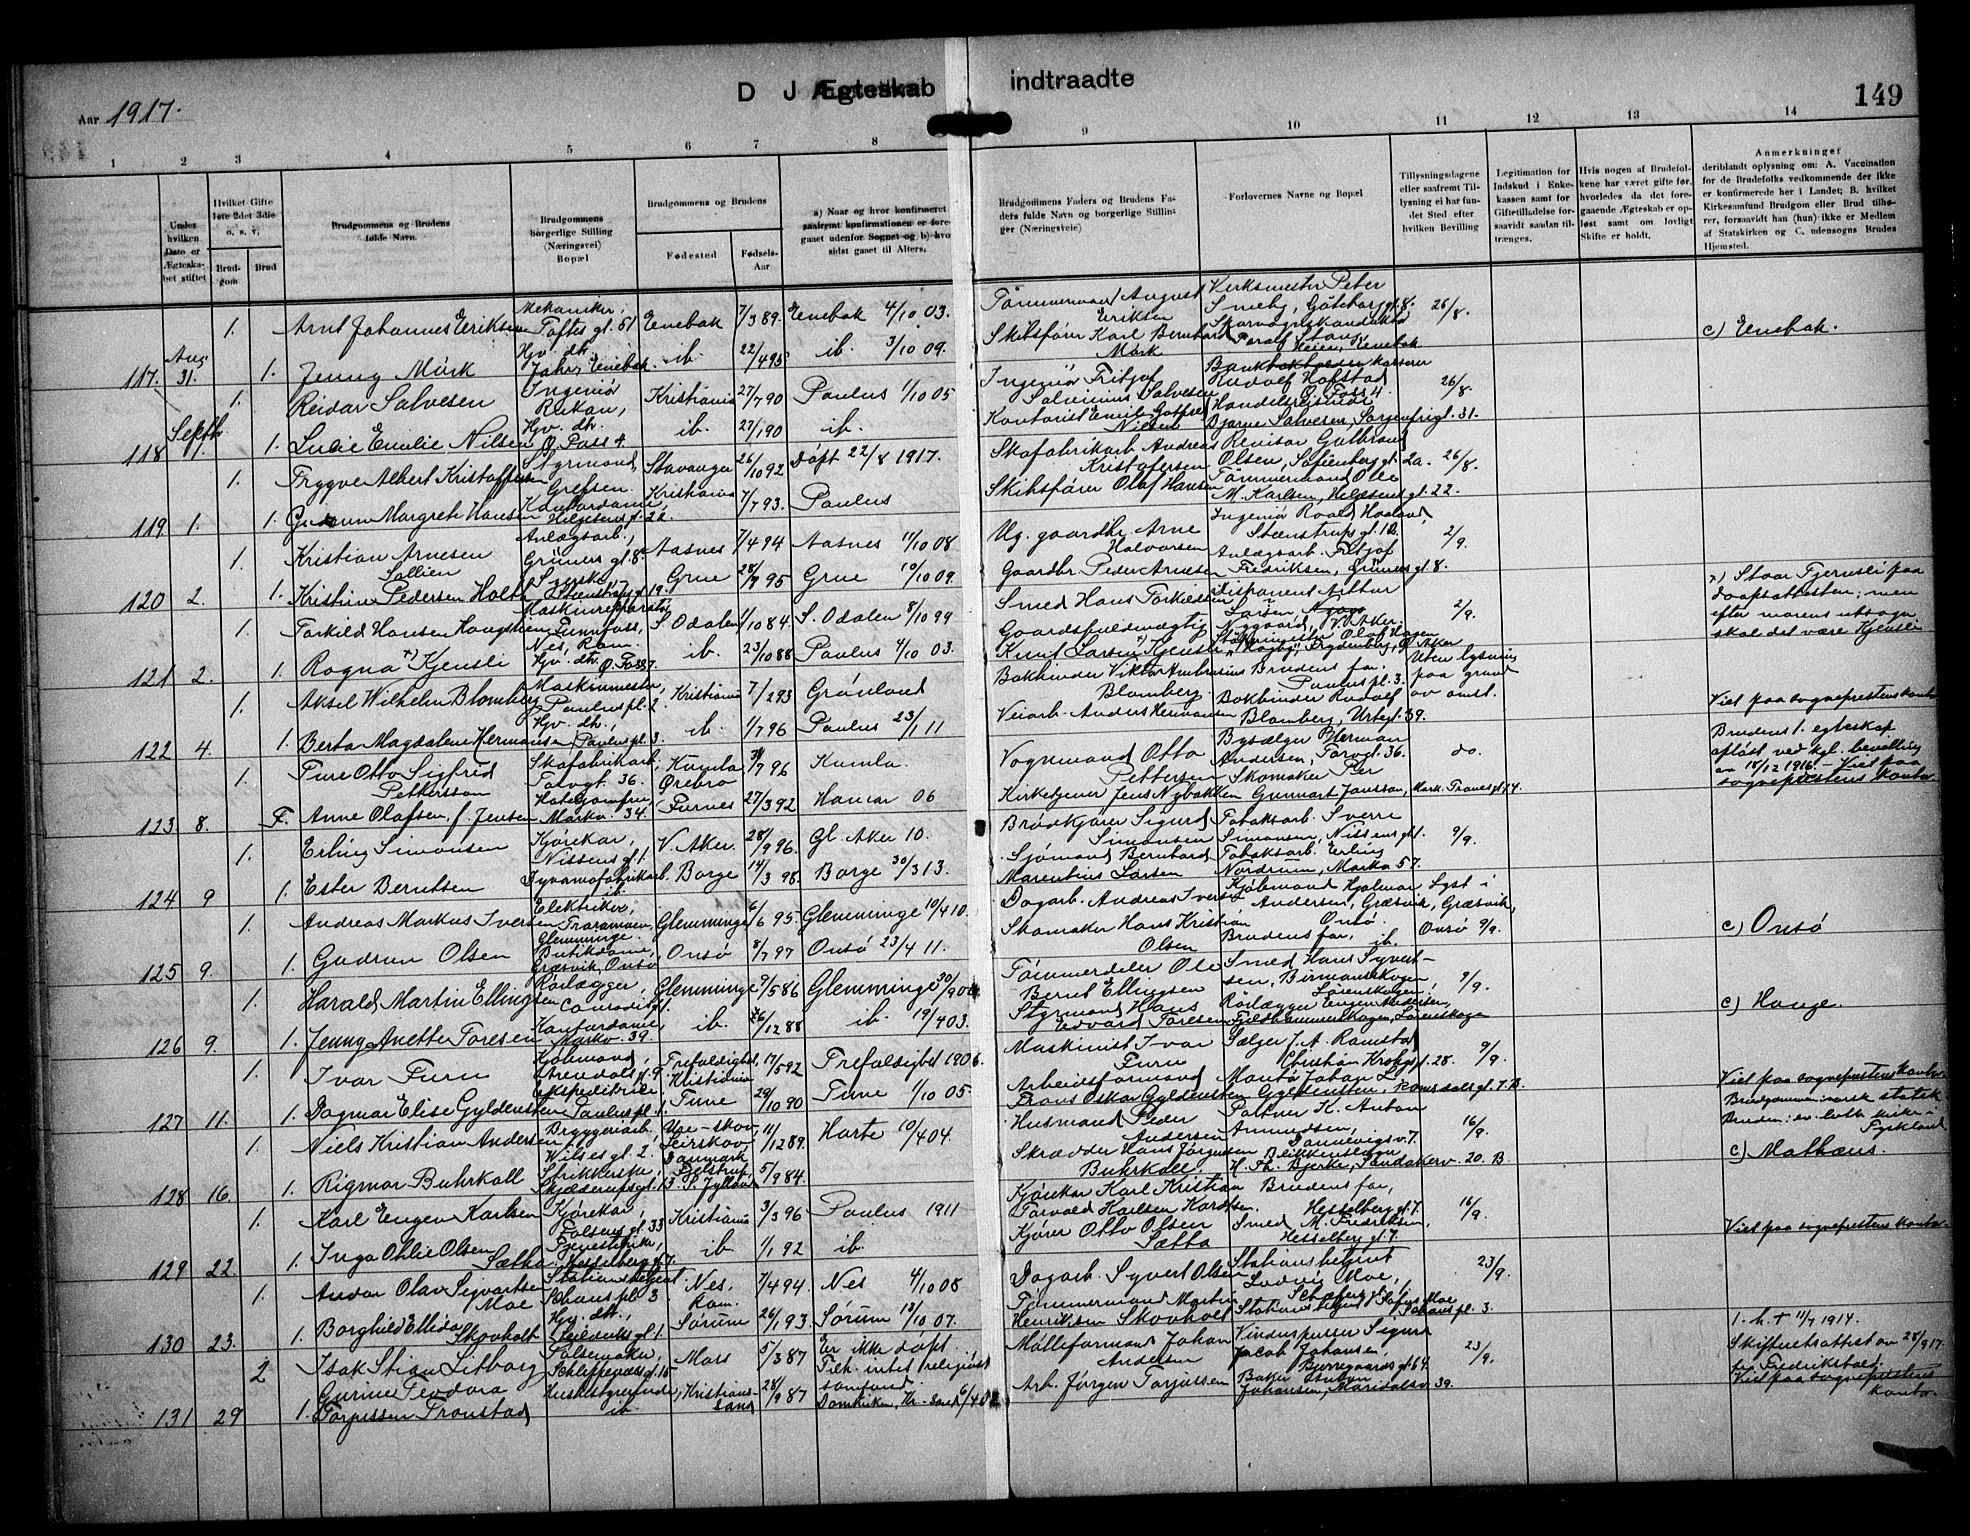 Aar 1917.
D J Ægteskab indtraadte
149
1 2 3 4 5 6 7 8 9 10 11 12 13 14
Under hvilken Dato er Ægteskabet stiftet
Hvilket Gifte 1ste 2det 3die o. s. v.
Brudgom
Brud
Brudgommens og Brudens fulde Navn.
Brudgommens borgerlige Stilling (Næringsvei) Bopæl
Brudgommens og Brudens
Fødested
Fødsels-Aar
a) Naar og hvor konfirmeret saafremt konfirmationen er foregaaet udenfor Sognet og b) hvor sidst gaaet til Alters.
Brudgommens Faders og Brudens Faders fulde Navn og borgerlige Stillinger (Næringsveie)
Forlovernes Navne og Bopæl
Tillysningsdagene eller saafremt Tillysning ei har fundet Sted efter hvilken Bevilling
Legitimation for Indskud i Enkekassen samt for Giftetilladelse forsaavidt saadan tiltrænges.
Hvis nogen af Brudefolkene har været gifte før, hvorledes da det foregaaende Ægteskab er opløst samt om lovligt Skifte er holdt.
Anmerkninger deriblandt oplysning om: A. Vaccination for de Brudefolks vedkommende der ikke er konfirmerede her i Landet; B. hvilket Kirkesamfund Brudgom eller Brud tilhører, forsaavidt han (hun) ikke er Medlem af Statskirken og C. udensogns Brudes Hjemsted.
1. Arnt Johannes Eriksen Mekaniker, Toftes gt. 51 Enebak 7/3 89. Enebak 4/10 03. Tømmermand August Eriksen Verksmester Peter Smeby, Göteborggt. 8. 26/8. c) Enebak.
117. Aug 31. 1. Jenny Mörk Hjv. dtr. Enebak. ib. 22/4 95 ib. 3/10 09. Skibsfører Karl Bernhard Mørk
1. Reidar Salvesen Ingeniör Rukan, Kristiania 27/7 90 Paulus 1/10 05 Ingeniör Fritjof Salvesen Rudolf Hofstad 26/8.
118 Septb. 1. 1. Lucie Emilie Nilsen Hjv. dtr. Ø. Foss 4 ib. 27/1 90 ib. Kontorist Emil Nilsen Bjarne Salvesen, Sorgenfrigt. 31.
1. Tryggve Albert Kristoffersen Styrmand Grefsen. Stavanger 26/10 92 Döpt 22/8 1917. Skofabrikarb. Andreas Kristofersen Revisor Gulbrand Olsen, Sofienberggt. 2a. 26/8.
119 1. 1. Gudrun Margrete Hansen Kontordame, Helgesensgt. 22 Kristiania 7/7 93. Paulus Skibsfører Olaf Hansen Tömmermand Ole M. Karlsen, Helgesensgt. 22.
1. Kristian Arnesen Sollien Anlægsarb., Grünersgt. 8. Aasnes 7/4 94 Aasnes 11/10 08 Ug. gaardbr. Arne Halvorsen Ingeniör Roald Steenstrupsgt. 10. 2/9.
120 2. 1. Kristine Pedersen Holth Syerske, Steenstrupsgt. 19. Grue 28/8 95 Grue 10/10 09. Gaardbr. Peder Arnesen Anlægsarb. Fritjof Fredriksen, Grünersgt. 8.
x) Staar Tjernsli paa daapsattesten; men efter morens utsagn skal det være Kjensli
1. Torkild Hansen Haugstien Maskinreparatør Funnefoss, Nes, Rom. S. Odalen 1/10 84. S. Odalen 8/10 99 Smed Hans Torkildsen Disponent Arthur Larsen, Nygaard, V. Aker. 2/9.
121 2. 1. Rogna x) Kjensli Hjv. dtr. Ø. Foss 7. ib. 23/10 88 Paulus 4/10 03. Gaardsfuldmægtig Knut Larsen Kjensli Olaf Hagen, Frydenberg, Ø. Aker
1. Aksel Wilhelm Blomberg Maskinmester, Paulus pl. 2. Kristiania 7/2 93 Grønland Bokbinder Viktor Ambrosius Blomberg. Brudens far. Paulus pl. 3. Uten lysning paa grund av amt. Viet paa sogneprestens kontor
122 4. 1. Berta Magdalene Hermansen Hjv. dtr., Paulus pl. 3. ib. 1/7 96 Paulus 23/1 11 Veiarb. Anders Hermansen Bokbinder Rudolf Blomberg, Urtegt. 39.
1. Ture Otto Sigfrid Pettersson Skofabrikarb., Torvgt. 36. Kumla Örebro 31/7 96 Kumla. Vognmand Otto Pettersen Bysælger Herman Andersen, Torvgt. 36. do.
Brudens 1. egteskap opløst ved kgl. bevilling av 18/12 1916. – Viet paa sogneprestens kontor
123 8. F. Anne Olafsen, f. Jensen Markv. 34. Furnes 27/3 92 Hamar 06 Kirketjener Jens Nybakken Skomaker Per Gunnart Jansson, Mark. Tranesgt. 14.
1. Erling Simonsen Kjørekar, Nissensgt. 1. V. Aker. 28/9 96. Gl. Aker 10. Brödkjører Sigurd Simonsen Tobaksarb. Sverre Simonsen, Nissensgt. 1. 9/9.
124 9 1. Ester Berntsen Dynamofabrikarb. ib. Borge 14/3 98. Borge 30/3 13. Sjømand Bernhard Marentius Larsen Tobaksarb. Erling Nordrum, Markv. 57.
1. Andreas Markus Iversen Elektriker, Traramoen, Glemminge. Glemminge 6/6 95. Glemminge 10/4 10. Dagarb. Andreas Iversen Kjøbmand Hjalmar Andersen, Græsvik, Lyst i Græsvik, Onsö 9/9. c) Onsö
125 9. 1. Gudrun Olsen Butikdame, Græsvik, Onsö Onsö 8/7 97 Onsö 23/4 11. Skomaker Hans Kristian Olsen Onsö. Brudens far, ib.
1. Harald Martin Ellingsen Rörlægger, Conradisgt. Glemminge 9/5 86 Glemminge 30/9 00 Tømmerdeler Ole Bernt Ellingsen Smed Hans Syvertsen, Birmanskogen, Lörenskogen. 9/9. c) Hauge.
126 9. 1. Jenny Anette Toresen Kontordame, Markv. 39. ib. 26/12 88 ib. 19/4 03. Styrmand Hans Edvard Toresen Rörlægger Eugen Andersen, Fjeldhammerskogen, Lörenskogen
1. Ivar Furu Kjøbmand, Arendalsgt. 9. Trefoldighed Kristiania 17/5 92 Trefoldighed 1906. Maskinist Ivar Furu Sælger J. A. Ramstad Christian Krohgsgt. 28. 9/9.
127 11. 1. Dagmar Elise Gyldensten Ekspeditrice Paulus pl. 1. Tune 29/10 90 Tune 1/10 05. Arbeidsformand Frans Oskar Gyldensten Montør Johan L. Gyldensten, Romsdalsgt. 7. B. Viet paa sogneprestens kontor.
1. Niels Kristian Andersen Bryggeriarb., Wilsesgt. 2. Leirskov Danmark 11/12 89. Harte 10/4 04. Husmand Peder Andersen K. Anton Amundsen, Dannevigsv. 7. 16/9. Brudgommen: norsk statsk. Bruden: ev. luth. kirke i Tyskland
128 16. 1. Rigmor Buhrkall Strikkerske, Skjæderupsgt. 13. Jelstrup, S. Jylland 5/9 84. Skrædder Hans Jörgensen Buhrkall. Blikkenslager H. Th. Bjerke, Sandakerv. 20. B c) Mathæus.
1. Karl Eugen Karlsen Kjørekar, Falsensgt. 33 Kristiania 3/3 96 Paulus 1911 Kjørekar Karl Kristian Torvald Karlsen Brudens far, Hesselberggt. 7. 16/9. Viet paa sogneprestens kontor
129 22. 1. Inga Othlie Olsen Sætha Tjenestepike, Hesselberggt. 7. ib. 1/1 92 ib. Kjører Otto Olsen Sætha Smed M. Fredriksen, Hesselberggt. 7.
1. Andor Olav Sigvartsen Moe Stationsbetjent Schous pl. 3 Nes, Rom. 7/4 94 Nes 4/10 08 Dagarb. Syvert Olsen Stationsbetjent Ludvig Moe, 23/9.
130 23. 1. Borghild Ellida Skovholt Hjv. dtr., Seilduksgt. 1. Sørum 26/1 93. Sørum 13/10 07. Tømmermand Martin Henriksen Skovholt Stationsbetjent Moe Schous pl. 3.
2 Isak Stian Litborg Pølsemaker, Schleppegrelsgt. 15 Moss 5/3 87 Er ikke döpt. Tilh. intet religiöst samfund. Mølleformand Johan Andersen Vinduspusser Sigurd Jacob Johansen, Bjerregaardsgt. 64. 23/9.
1. h. † 11/7 1914. Skifteretsattest av 28/9 17. fra Fredrikstad. Viet paa sogneprestens kontor.
131 29 1. Gurine Teodora Torjussen Tronstad Husbestyrerinde, ib. Kristianssand 28/9 87 Domkirken, Kr.sand 6/4 02 Arb. Jørgen Torjussen Baker Johansen, Maridalsv. 39.